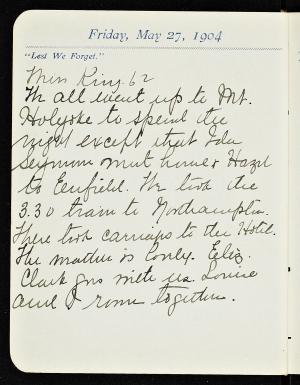 Friday, May 27, 1904
"Lest We Forget."
Miss King 62
We all went up to Mt.
Holyoke to spend the
night except that Ida
Seymour went home & Hazel
to Enfield. We took the
3.30 train to Northampton.
There took carriages to the Hotel.
The weather is lovely. Eeliz.
Clark goes with us. Louise
and I room together.